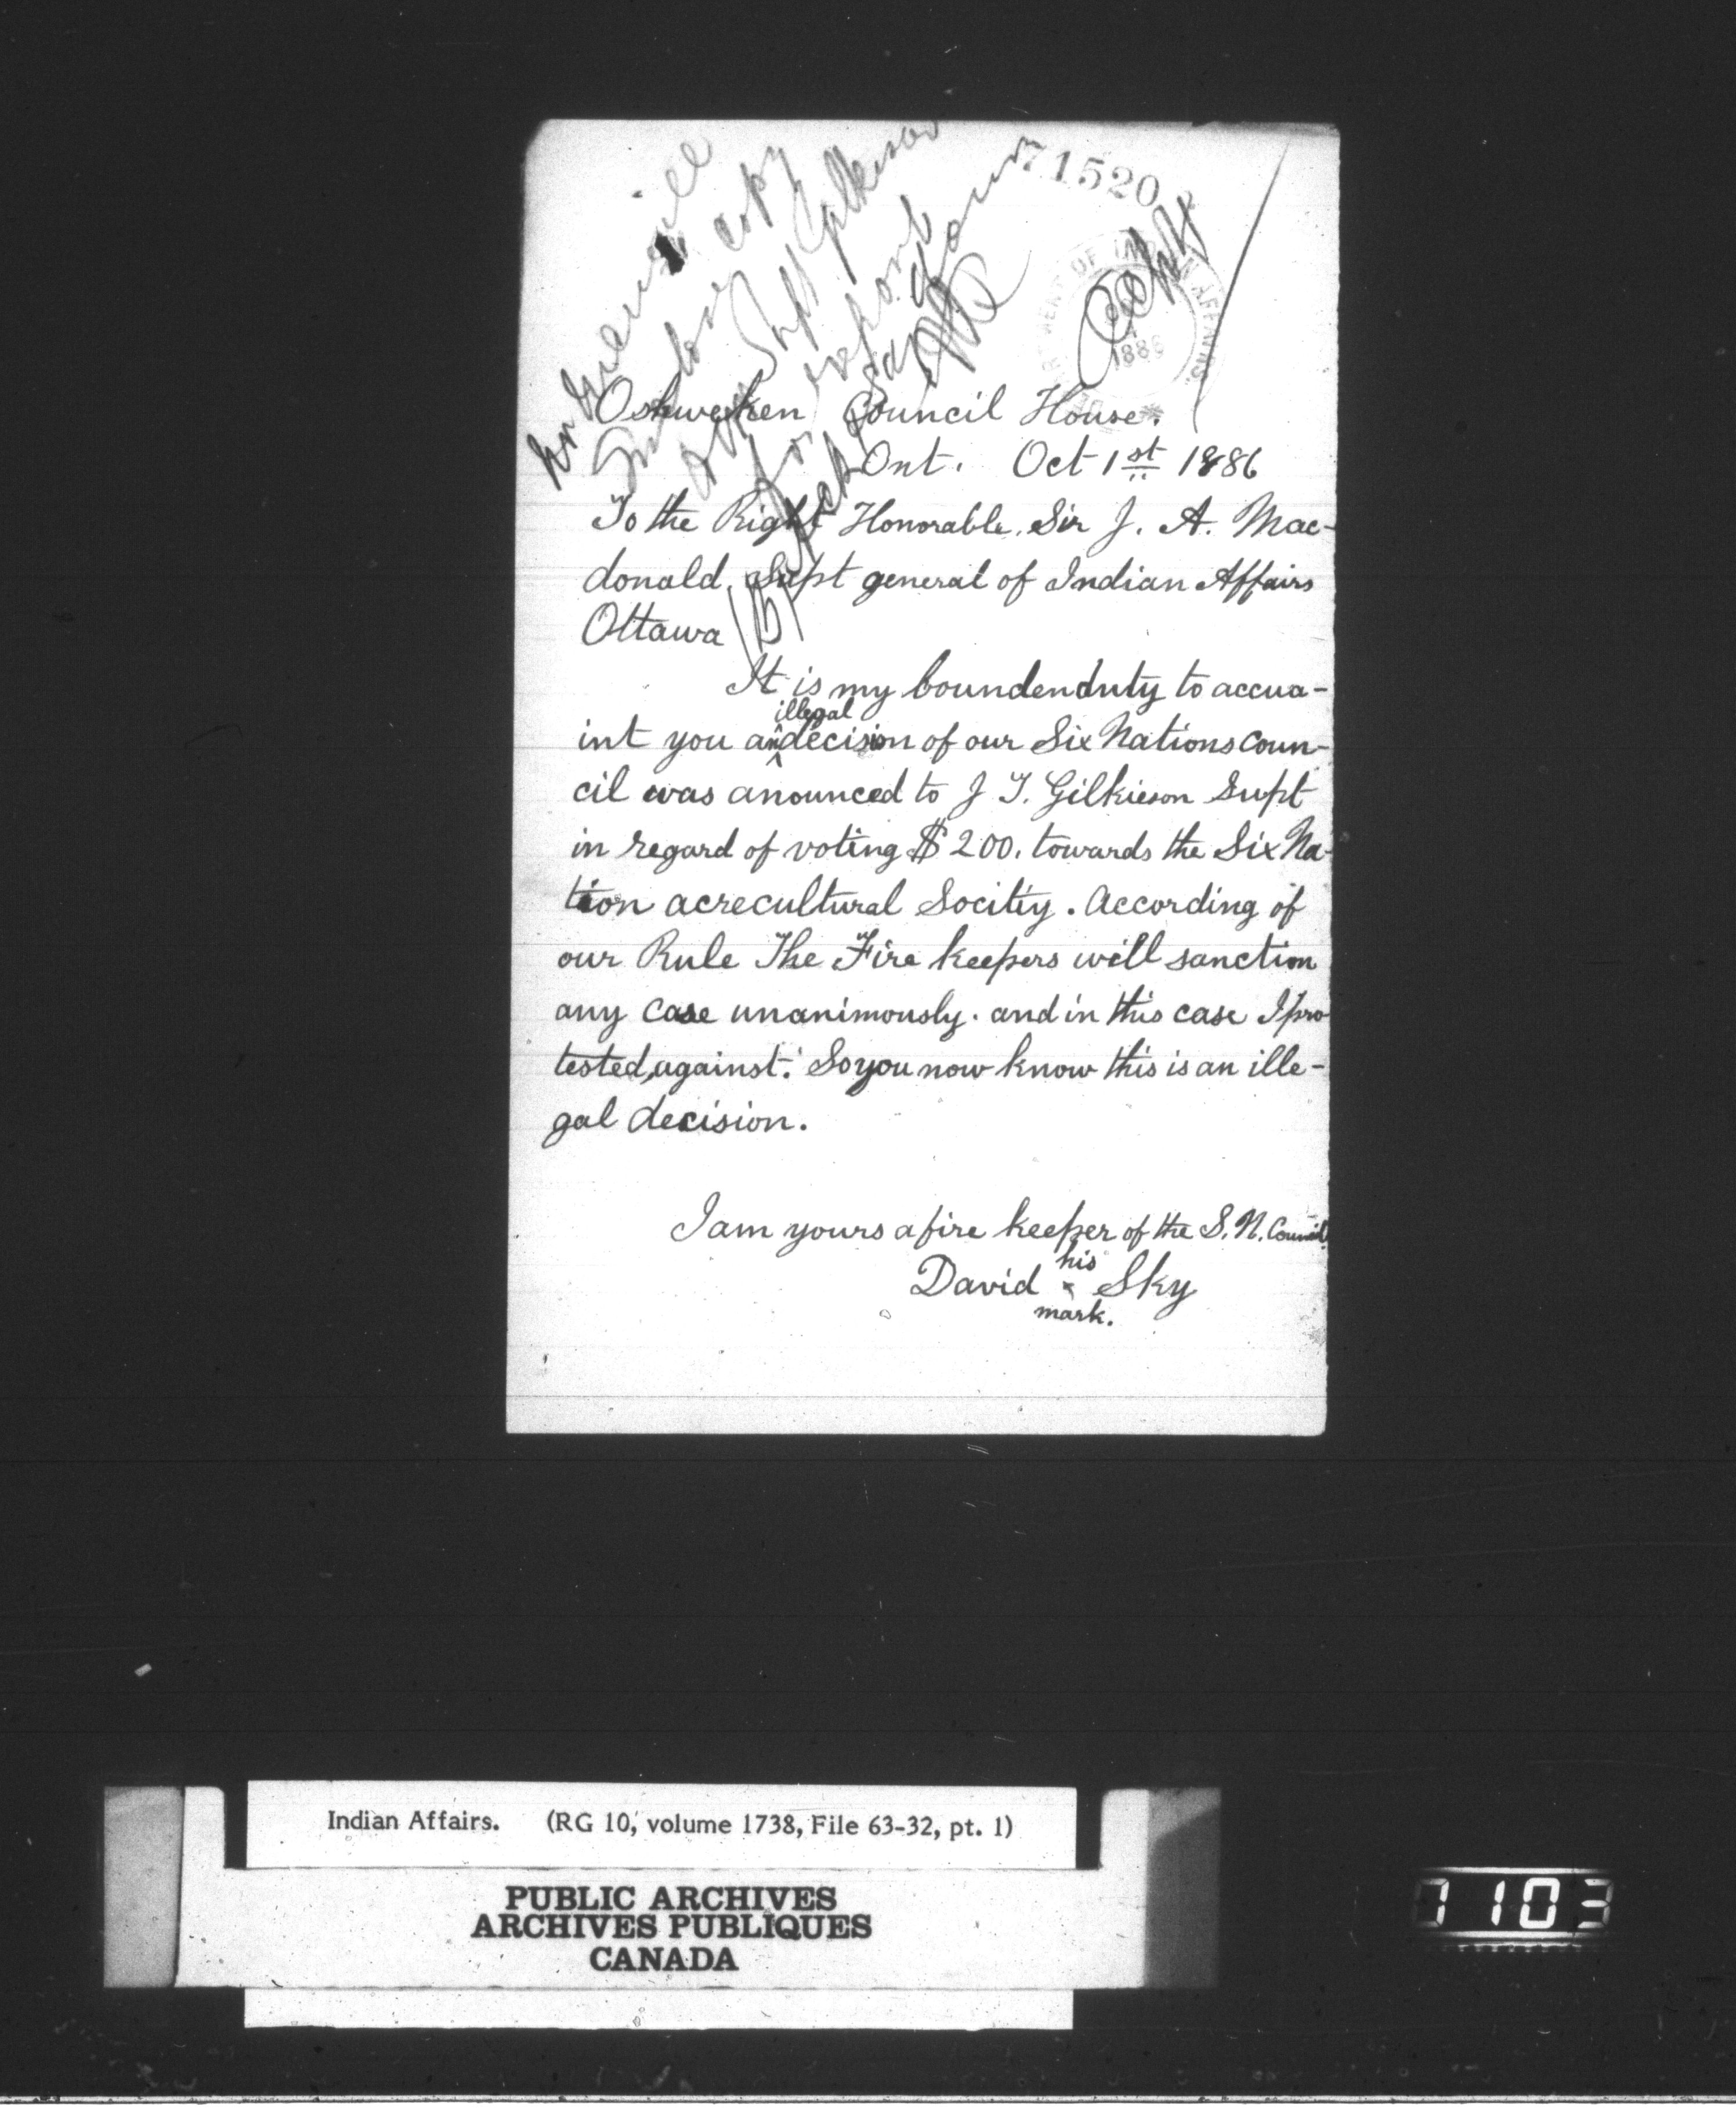 71520
copy
Supt Gilkison
for report
1886
Oshweken Council House.
Ont. Oct 1st 1886
To the Right Honorable. Sir J. A. Mac-
donald. Supt general of Indian Affairs
Ottawa
It is my boundenduty to accua-
illegal
int you an decision of our Six Nations Coun-
cil was anounced to J T. Gilkieson Supt
in regard of voting $200. towards the Six Na-
tion acrecultural Socitiy. According of
our Rule The Fire keepers will sanction
any case unanimously. and in this case I pro-
tested, against. So you now know this is an ille-
gal decision.
I am yours a fire keeper of the S. N. Council.
his
David x Sky
mark.
Indian Affairs. (RG 10, volume 1738, File 63-32, pt. 1)
PUBLIC ARCHIVES
ARCHIVES PUBLIQUES
CANADA
1103